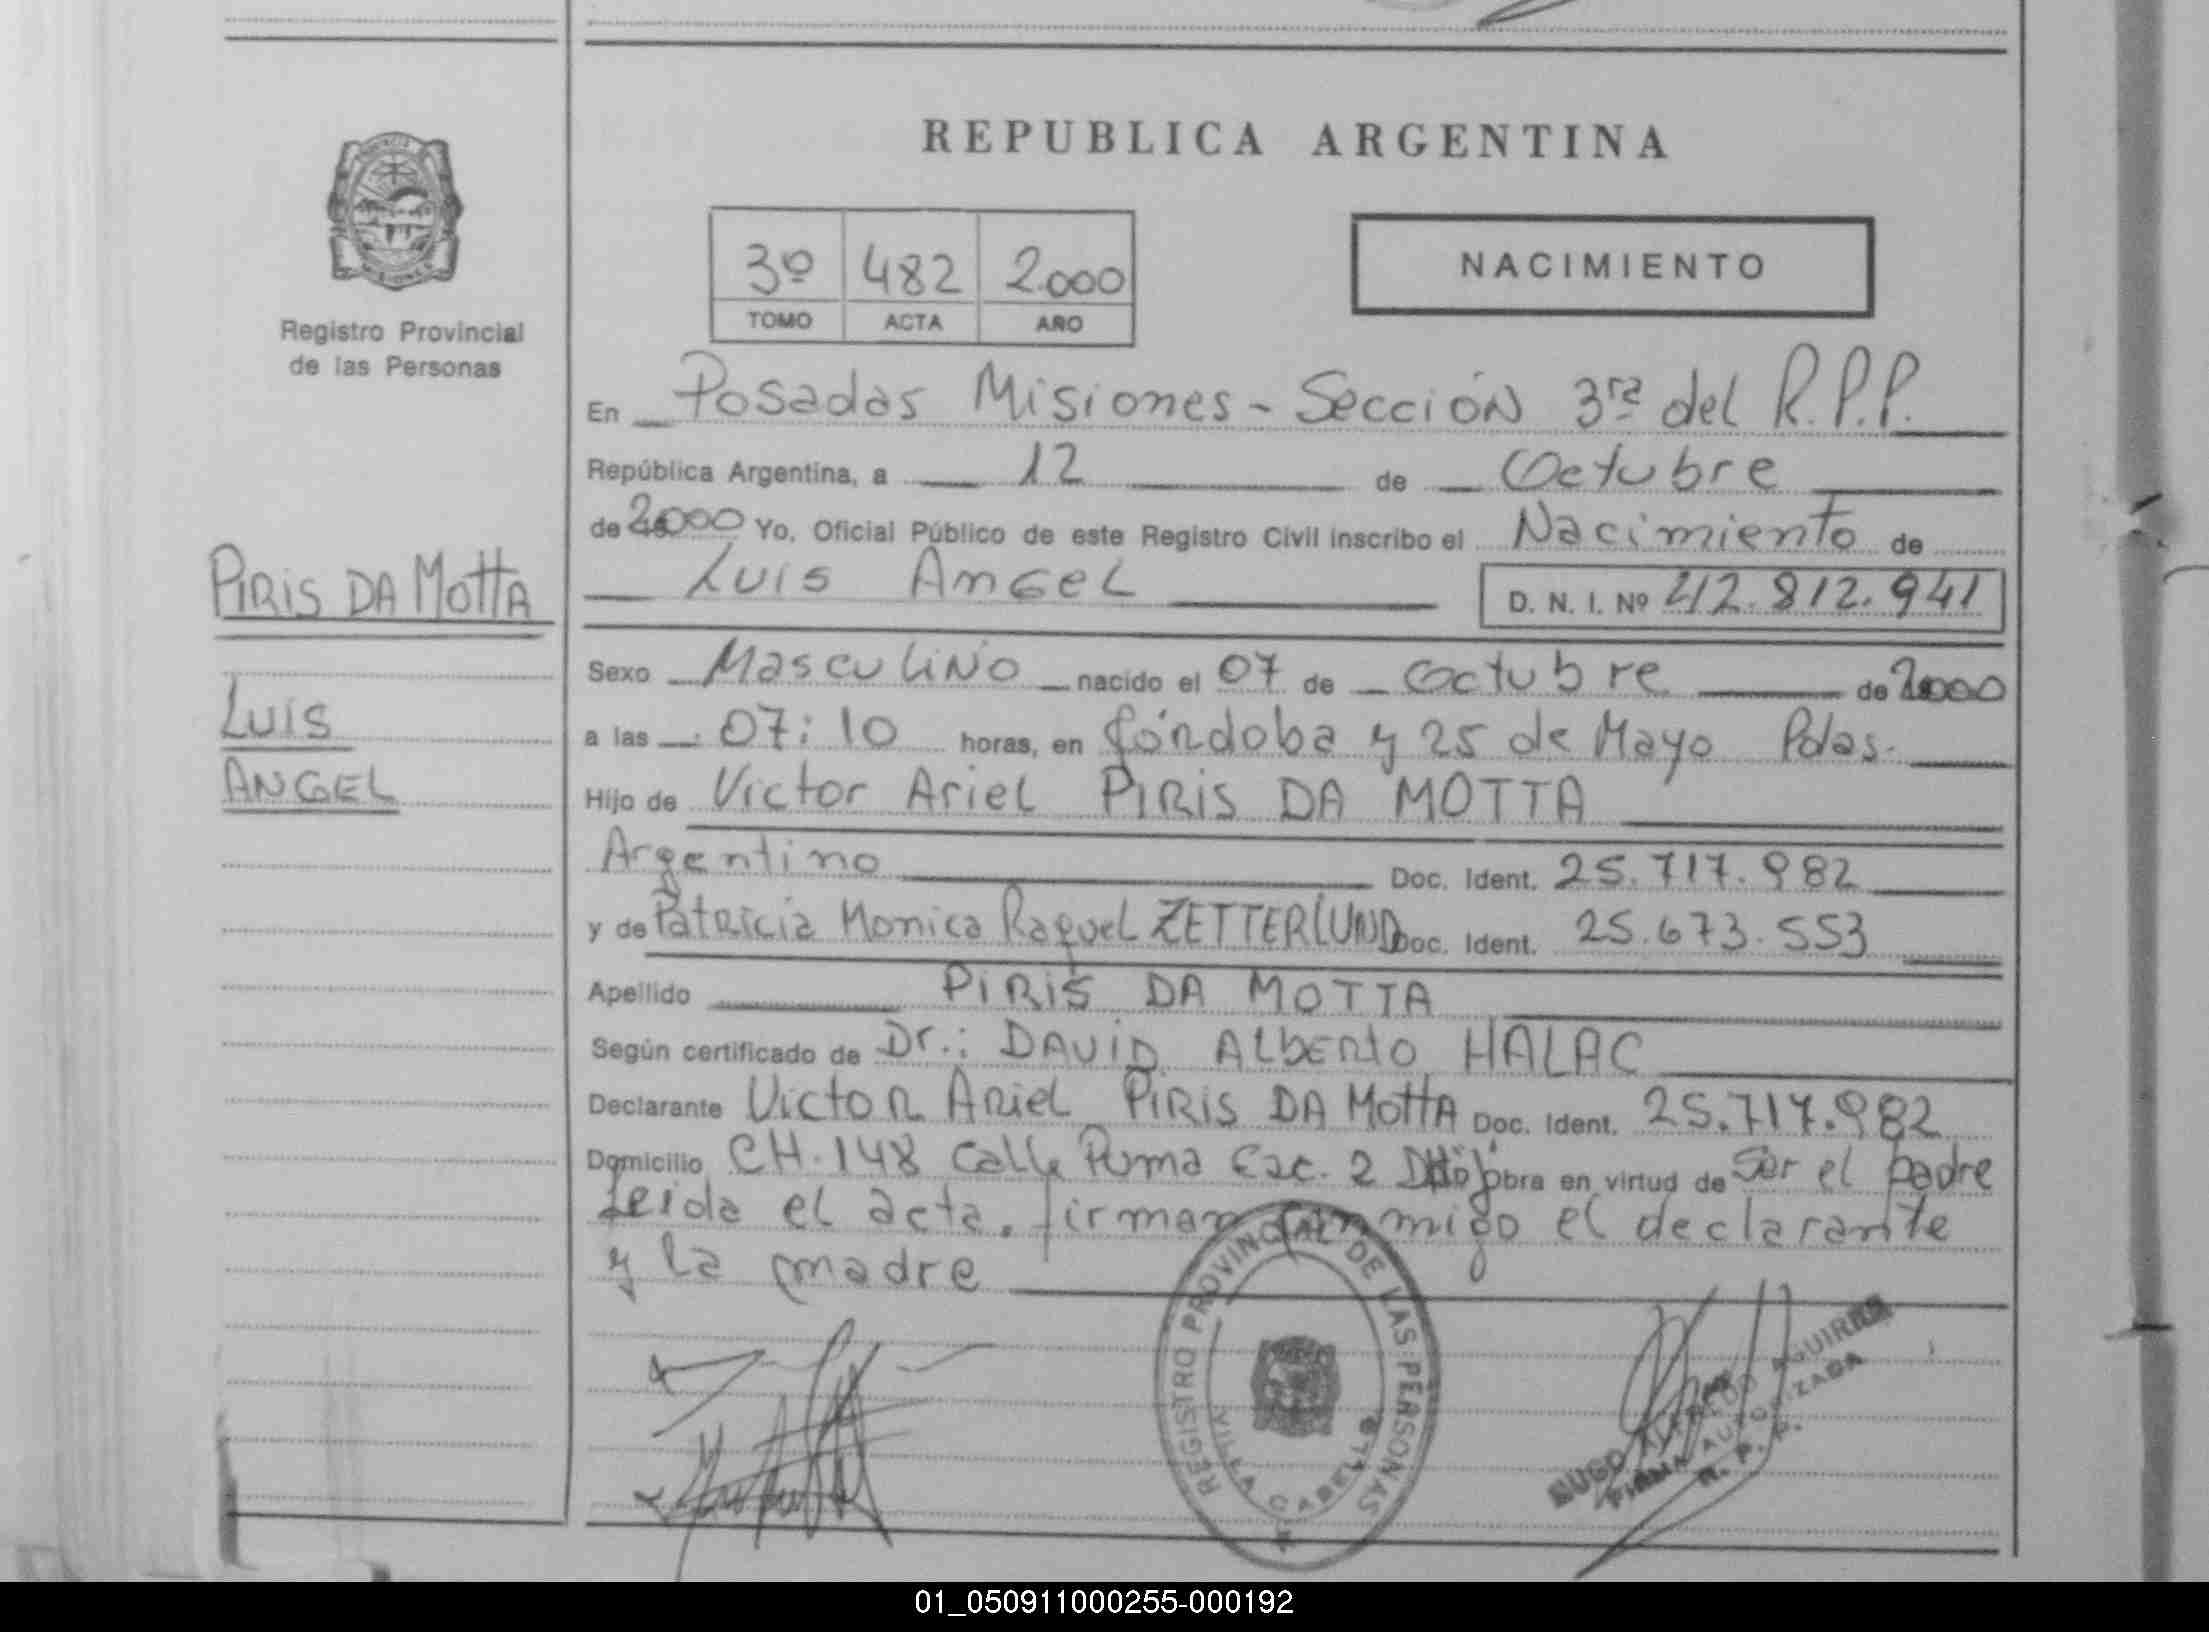 REPUBLICA ARGENTINA
3º 482 2.000
TOMO ACTA AÑO
NACIMIENTO
Registro Provincial
de las Personas
PIRIS DA MOTTA
LUIS
ANGEL
En Posadas Misiones - Sección 3ra del R.P.P.
República Argentina, a 12 de Octubre
de 2000 Yo, Oficial Público de este Registro Civil inscribo el Nacimiento de
Luis Angel D. N. I. Nº 42.812.941
Sexo Masculino nacido el 07 de Octubre de 2000
a las 07:10 horas, en Córdoba y 25 de Mayo Pdas.
Hijo de Victor Ariel PIRIS DA MOTTA
Argentino Doc. Ident. 25.717.982
y de Patricia Monica Raquel ZETTERLUND Doc. Ident. 25.673.553
Apellido PIRIS DA MOTTA
Según certificado de Dr.: DAVID ALBERTO HALAC
Declarante Victor Ariel PIRIS DA MOTTA Doc. Ident. 25.717.982
Domicilio CH. 148 Calle Puma Esc. 2 obra en virtud de Ser el padre
Leida el acta, firman conmigo el declarante
y la madre
REGISTRO PROVINCIAL DE LAS PERSONAS
VILLA CABELLO
HUGO ALFREDO AGUIRRE
FIRMA AUTORIZADA
R. P. P.
01_050911000255-000192